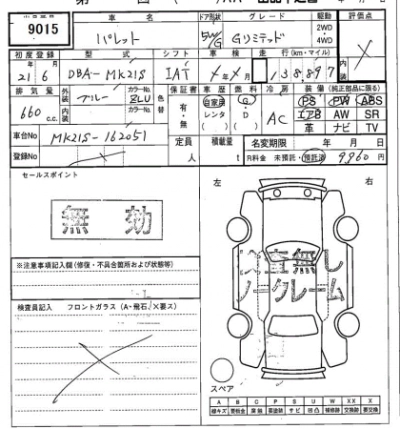 9015
車名 ドア形状 グレード 駆動 評価点
パレット 5W/G Gリミテッド 2WD 4WD X
初度登録 型式 シフト 車検 走行(km・マイル) 内装
21年6月 DBA-MK21S IAT X年X月 138,897
排気量 外装 カラーNo. 色替 保証書 車歴 燃料 冷房 装備(純正部品に限る)
660c.c. ブルー カラーNo. ZLU 有・無 自家用 レンタ ( ) G D ( ) AC PS PW ABS
エアB AW SR
革 ナビ TV
車台No MK21S-162051 定員 人 積載量 t 名変期限 年 月 日
登録No R料金 未預託・預託済 9960円
セールスポイント
左 右
無効
※注意事項記入欄(修復・不具合箇所および状態等)
検査員記入 フロントガラス(A・飛石/X要ス)
検査無し
ノークレーム
スペア
A B C P S U W X XX